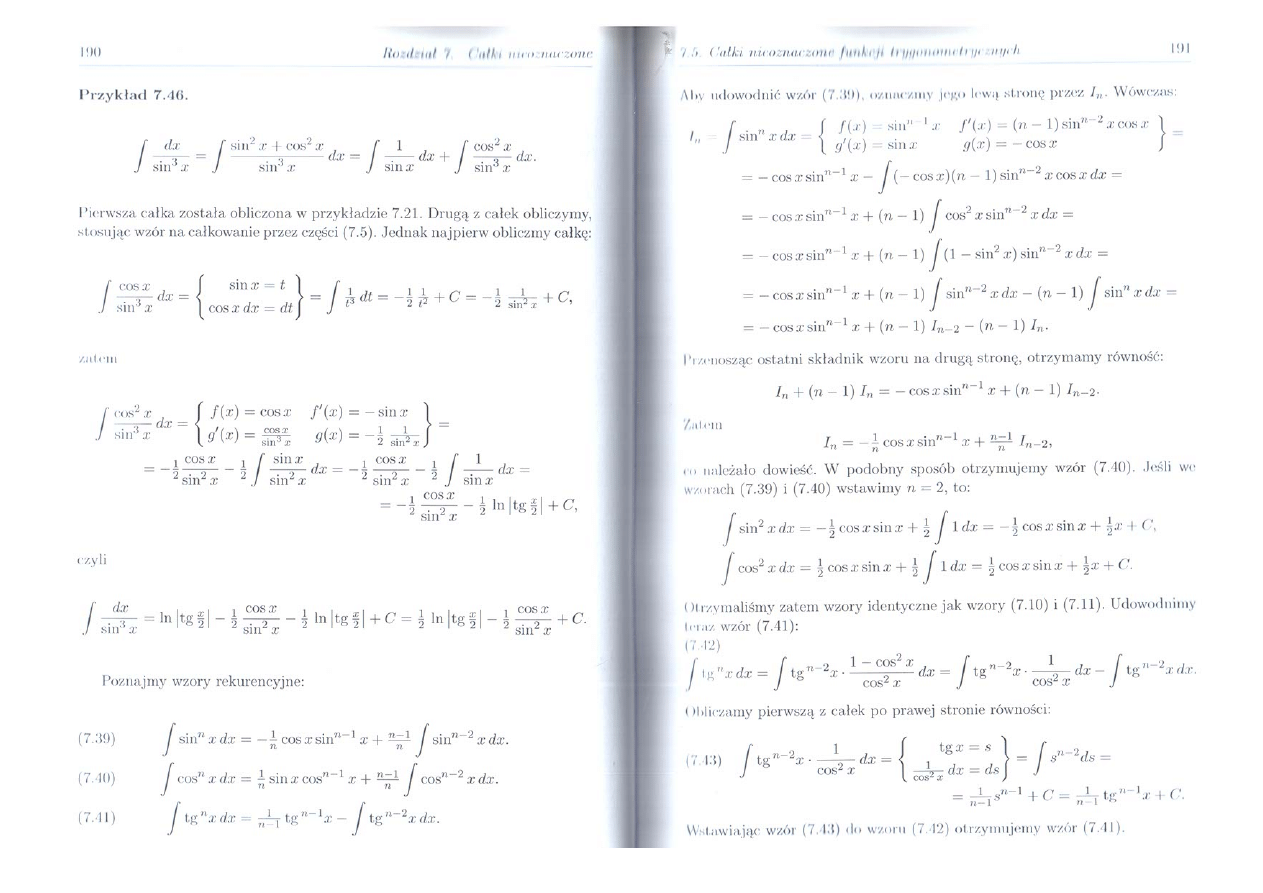 190 Rozdział 7. Całki nieoznaczone
Przykład 7.46.
∫ dx/sin³ x = ∫ (sin² x + cos² x)/sin³ x dx = ∫ 1/sin x dx + ∫ cos² x/sin³ x dx.
Pierwsza całka została obliczona w przykładzie 7.21. Drugą z całek obliczymy,
stosując wzór na całkowanie przez części (7.5). Jednak najpierw obliczmy całkę:
∫ cos x/sin³ x dx = { sin x = t ; cos x dx = dt } = ∫ 1/t³ dt = −½ 1/t² + C = −½ 1/sin² x + C,
zatem
∫ cos² x/sin³ x dx = { f(x) = cos x f′(x) = − sin x ; g′(x) = cos x/sin³ x g(x) = −½ 1/sin² x } =
= −½ cos x/sin² x − ½ ∫ sin x/sin² x dx = −½ cos x/sin² x − ½ ∫ 1/sin x dx =
= −½ cos x/sin² x − ½ ln |tg x/2| + C,
czyli
∫ dx/sin³ x = ln |tg x/2| − ½ cos x/sin² x − ½ ln |tg x/2| + C = ½ ln |tg x/2| − ½ cos x/sin² x + C.
Poznajmy wzory rekurencyjne:
(7.39) ∫ sinⁿ x dx = −1/n cos x sinⁿ⁻¹ x + (n−1)/n ∫ sinⁿ⁻² x dx.
(7.40) ∫ cosⁿ x dx = 1/n sin x cosⁿ⁻¹ x + (n−1)/n ∫ cosⁿ⁻² x dx.
(7.41) ∫ tgⁿ x dx = 1/(n−1) tgⁿ⁻¹ x − ∫ tgⁿ⁻² x dx.
7.5. Całki nieoznaczone funkcji trygonometrycznych 191
Aby udowodnić wzór (7.39), oznaczmy jego lewą stronę przez Iₙ. Wówczas:
Iₙ = ∫ sinⁿ x dx = { f(x) = sinⁿ⁻¹ x f′(x) = (n − 1) sinⁿ⁻² x cos x ; g′(x) = sin x g(x) = − cos x } =
= − cos x sinⁿ⁻¹ x − ∫ (− cos x)(n − 1) sinⁿ⁻² x cos x dx =
= − cos x sinⁿ⁻¹ x + (n − 1) ∫ cos² x sinⁿ⁻² x dx =
= − cos x sinⁿ⁻¹ x + (n − 1) ∫ (1 − sin² x) sinⁿ⁻² x dx =
= − cos x sinⁿ⁻¹ x + (n − 1) ∫ sinⁿ⁻² x dx − (n − 1) ∫ sinⁿ x dx =
= − cos x sinⁿ⁻¹ x + (n − 1) Iₙ₋₂ − (n − 1) Iₙ.
Przenosząc ostatni składnik wzoru na drugą stronę, otrzymamy równość:
Iₙ + (n − 1) Iₙ = − cos x sinⁿ⁻¹ x + (n − 1) Iₙ₋₂.
Zatem
Iₙ = −1/n cos x sinⁿ⁻¹ x + (n−1)/n Iₙ₋₂,
co należało dowieść. W podobny sposób otrzymujemy wzór (7.40). Jeśli we
wzorach (7.39) i (7.40) wstawimy n = 2, to:
∫ sin² x dx = −½ cos x sin x + ½ ∫ 1 dx = −½ cos x sin x + ½x + C,
∫ cos² x dx = ½ cos x sin x + ½ ∫ 1 dx = ½ cos x sin x + ½x + C.
Otrzymaliśmy zatem wzory identyczne jak wzory (7.10) i (7.11). Udowodnimy
teraz wzór (7.41):
(7.42)
∫ tgⁿ x dx = ∫ tgⁿ⁻² x · (1 − cos² x)/cos² x dx = ∫ tgⁿ⁻² x · 1/cos² x dx − ∫ tgⁿ⁻² x dx.
Obliczamy pierwszą z całek po prawej stronie równości:
(7.43) ∫ tgⁿ⁻² x · 1/cos² x dx = { tg x = s ; 1/cos² x dx = ds } = ∫ sⁿ⁻² ds =
= 1/(n−1) sⁿ⁻¹ + C = 1/(n−1) tgⁿ⁻¹ x + C.
Wstawiając wzór (7.43) do wzoru (7.42) otrzymujemy wzór (7.41).